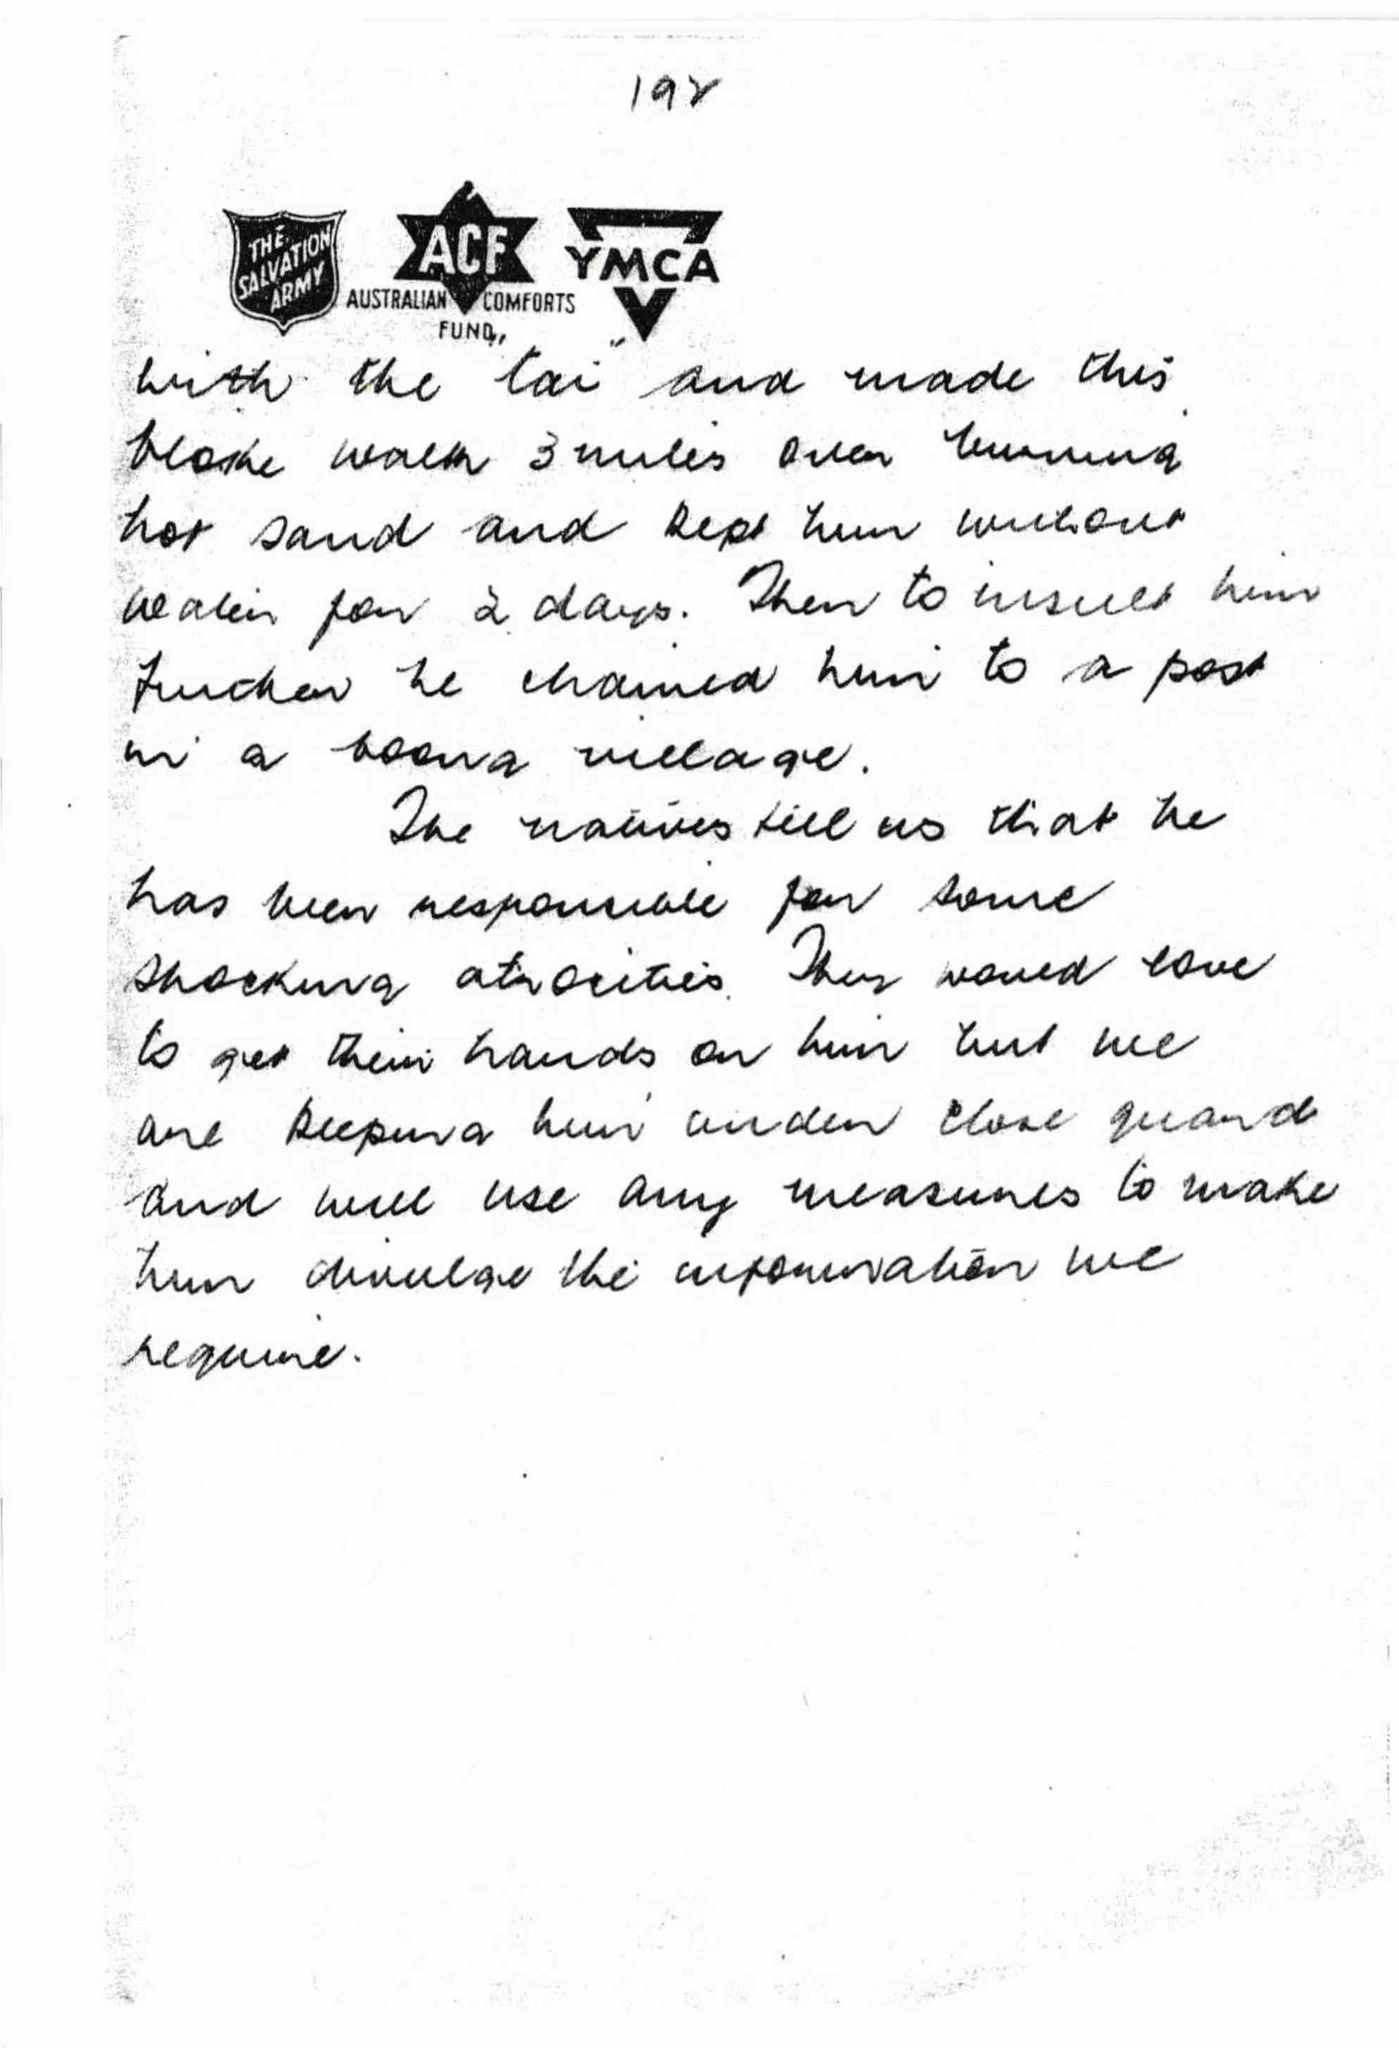 192
THE
SALVATION
ARMY
ACF
AUSTRALIAN COMFORTS
FUND
YMCA
with the "tai" and made this
bloke walk 3 miles over burning
hot sand and kept him without
water for 2 days. Then to insult him
further he chained him to a post
in a boong village.
The natives tell us that he
has been responsible for some
shocking atrocities. They would love
to get their hands on him but we
are keeping him under close guard
and will use any measures to make
him divulge the information we
require.